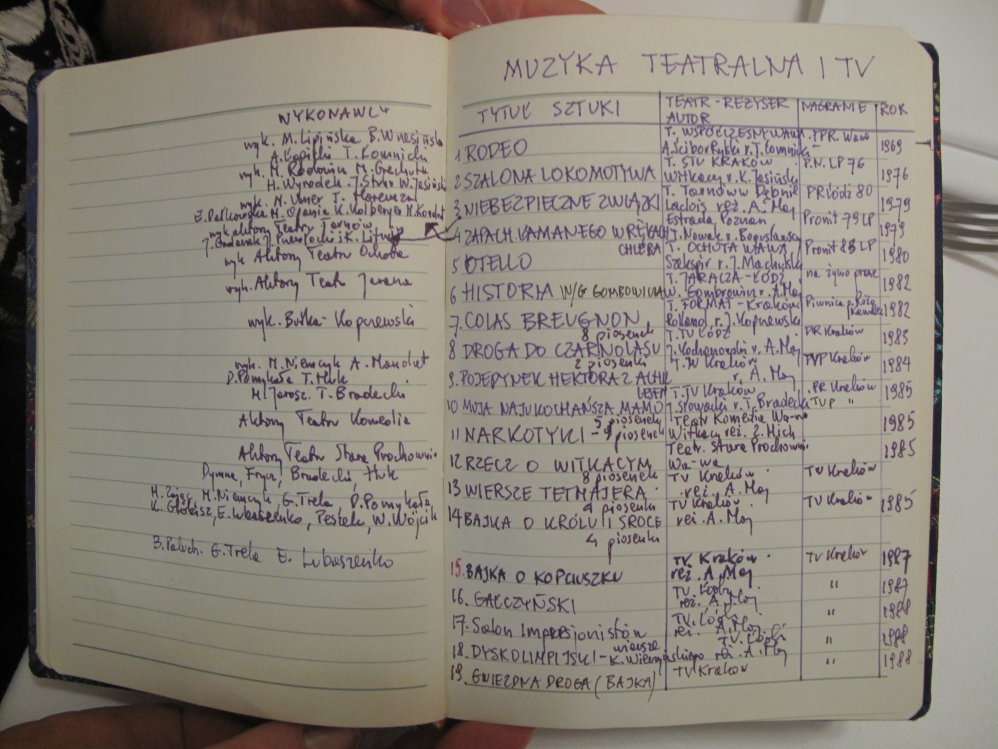 WYKONAWCY
wyk. M. Lipińska B. Wrzesińska
A. Łapicki T. Łomnicki
wyk. M. Rodowicz M. Grechuta
H. Wyrodek J. Stuhr W. Jasiński
wyk. N. Ulmer T.
wyk. aktorzy Teatru Tarnów
wyk Aktorzy Teatru Ochota
wyk. Aktorzy Teatr Jaracza
wyk. Butka - Kopczewski
wyk. M. Niemczyk A. Mandat
D. Pomykała T. Huk
M. Jarosz. T. Bradecki
Aktorzy Teatru Komedia
Aktorzy Teatr Stara Prochownia
Dymna, Frycz, Bradecki, Huk
M. Niemczyk G. Trela D. Pomykała
K. Globisz, E. Lubaszenko, Pestek, W. Wójcik
B. Paluch. G. Trela E. Lubaszenko
MUZYKA TEATRALNA I TV
TYTUŁ SZTUKI TEATR - REŻYSER AUTOR NAGRANIE ROK
1 RODEO T. WSPÓŁCZESNY WAWA PR. 1969
A. Ścibor Rylski r. T. Łomnicki
2 SZALONA LOKOMOTYWA T. STU KRAKÓW P.N. LP 76 1976
Witkacy r. K. Jasiński
3 NIEBEZPIECZNE ZWIĄZKI T. Tarnów PR Łódź 80 1979
Laclos reż. A. Maj
4 ZAPACH ŁAMANEGO W RĘKACH CHLEBA Estrada Poznań Pronit 79 LP 1979
J. Nowak r. Bogusławski
5 OTELLO T. OCHOTA WAWA Pronit 83 LP 1980
Szekspir r. J. Machulski
6 HISTORIA W/G GOMBROWICZA T. JARACZA - ŁÓDŹ na żywo 1982
W. Gombrowicz r. A. Maj
7. COLAS BREUGNON T. FORMAT - Kraków Piwnica p. 1982
8 piosenek Rolland r. J. Kopczewski
8 DROGA DO CZARNOLASU T. TV ŁÓDŹ PR Kraków 1985
2 piosenki J. Kochanowski r. A. Maj
9. POJEDYNEK HEKTORA Z ACHILLESEM T. TV Kraków TVP Kraków 1984
r. A. Maj
10 MOJA NAJUKOCHAŃSZA MAMO T. TV Kraków PR Kraków 1985
5 piosenek J. Słowacki r. T. Bradecki TVP "
11 NARKOTYKI - 9 piosenek Teatr Komedia Wa-wa 1985
Witkacy reż. Z. Mich
12 RZECZ O WITKACYM Teatr Stara Prochownia 1985
8 piosenek Wa-wa
13 WIERSZE TETMAJERA TV Kraków TV Kraków
4 piosenki reż. A. Maj
14 BAJKA O KRÓLU I SROCE TV Kraków TV Kraków 1985
4 piosenki reż. A. Maj
15. BAJKA O KOPCIUSZKU TV Kraków TV Kraków 1987
reż. A. Maj
16. GAŁCZYŃSKI TV. Łódź " 1987
reż. A. Maj
17. Salon Impresjonistów TV. Łódź " 1988
reż. A. Maj
18. DYSK OLIMPIJSKI - wiersze TV. Łódź " 1988
K. Wierzyńskiego reż. A. Maj
19. GWIEZDNA DROGA (BAJKA) TV Kraków " 1988